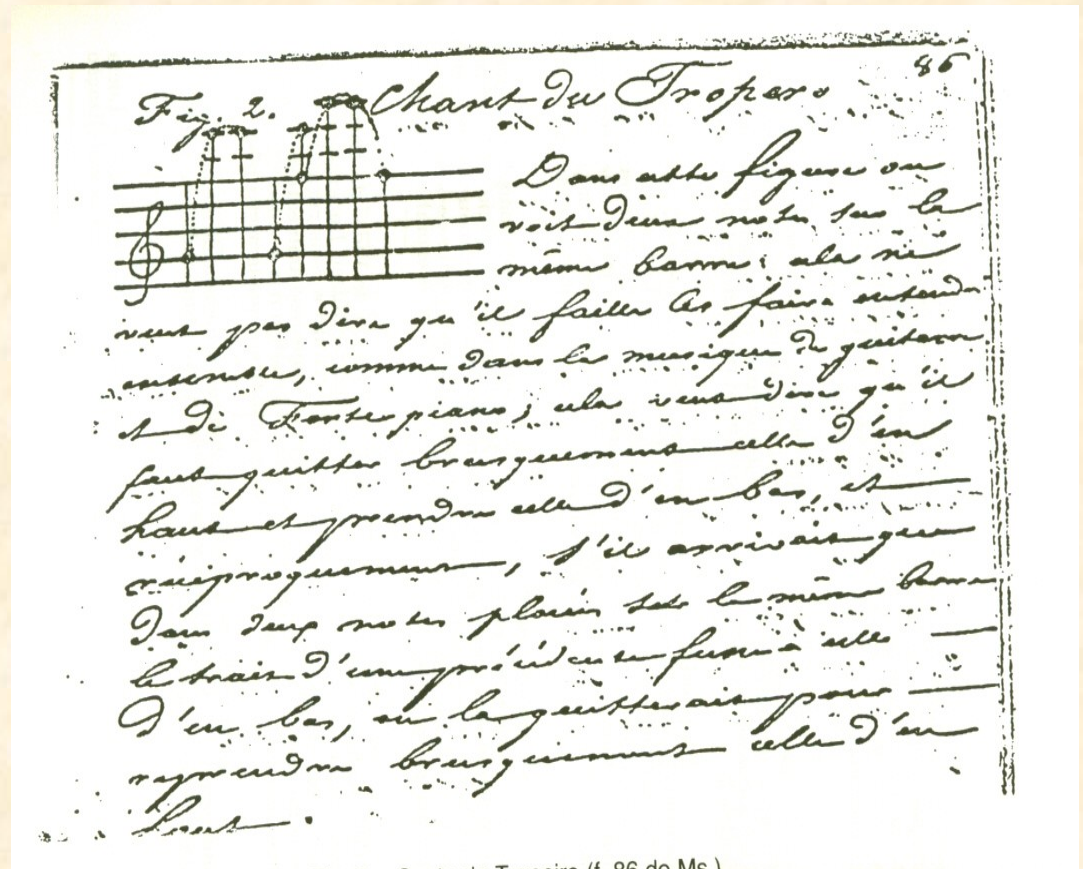 86
Fig. 2. Chant du Tropero
Dans cette figure on
voit deux notes sur la
même barre; cela ne
veut pas dire qu'il faille les faire entendre
ensemble, comme dans la musique de guitare
et de Forte piano; cela veut dire qu'il
faut quitter brusquement celle d'en
haut et prendre celle d'en bas, et
réciproquement, s'il arrivait que
dans deux notes placées sur la même barre
le trait d'une précédente fusse à celle
d'en bas, on la quitterait pour
reprendre brusquement celle d'en
haut.
(f. 86 do Ms.)